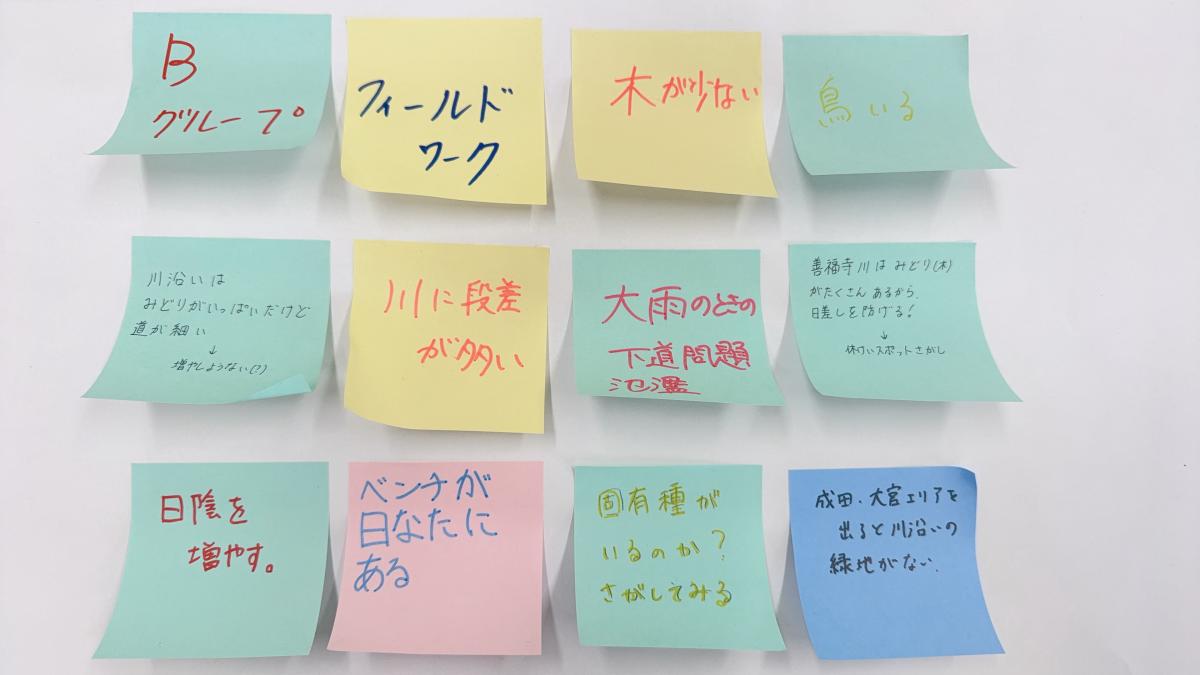 B
グループ
フィールド
ワーク
木が少ない
鳥いる
川沿いは
みどりがいっぱいだけど
道が細い
↓
増やしようない(?)
川に段差
が多い
大雨のときの
下道問題
氾濫
善福寺川はみどり(木)
がたくさんあるから、
日差しを防げる!
↓
休けいスポットさがし
日陰を
増やす。
ベンチが
日なたに
ある
固有種が
いるのか?
さがしてみる
成田・大宮エリアを
出ると川沿いの
緑地がない.